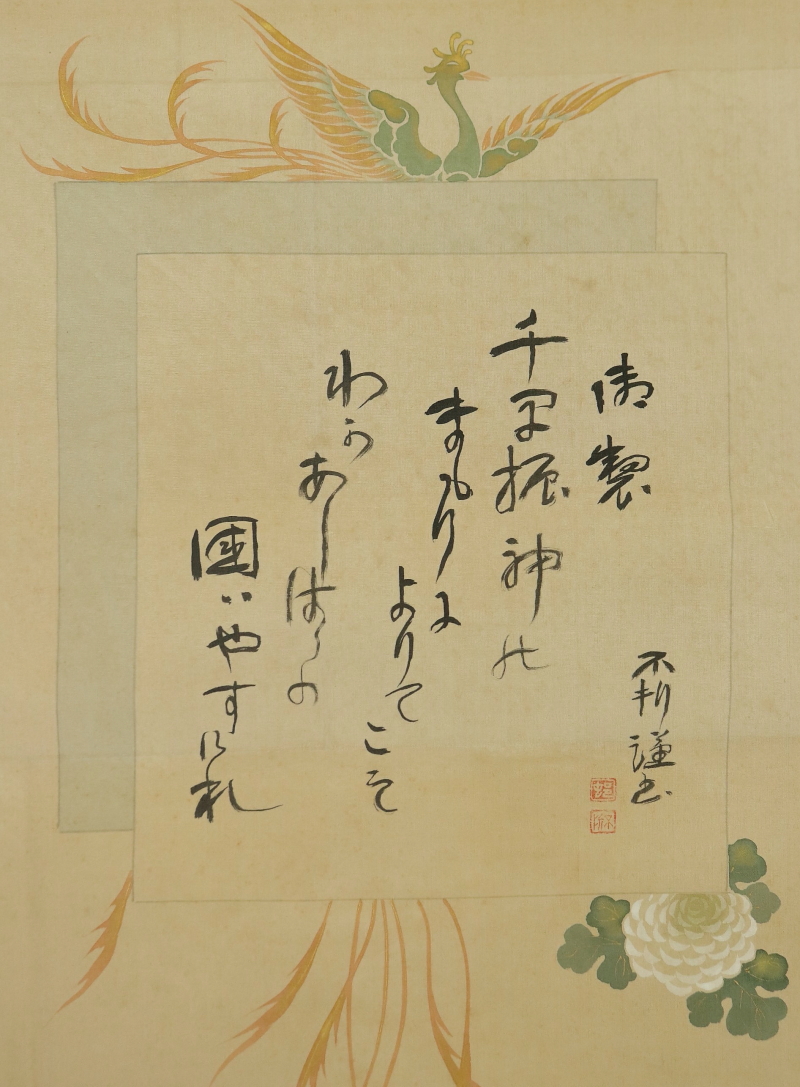 御製
千早振神の
まもりに
よりてこそ
わか
あしはらの
國はやすけれ
謹書